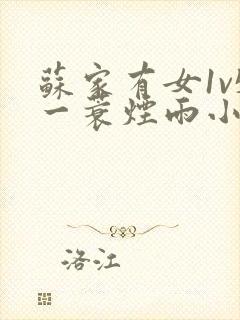 蘇家有女1v
一蓑煙雨小
洛江